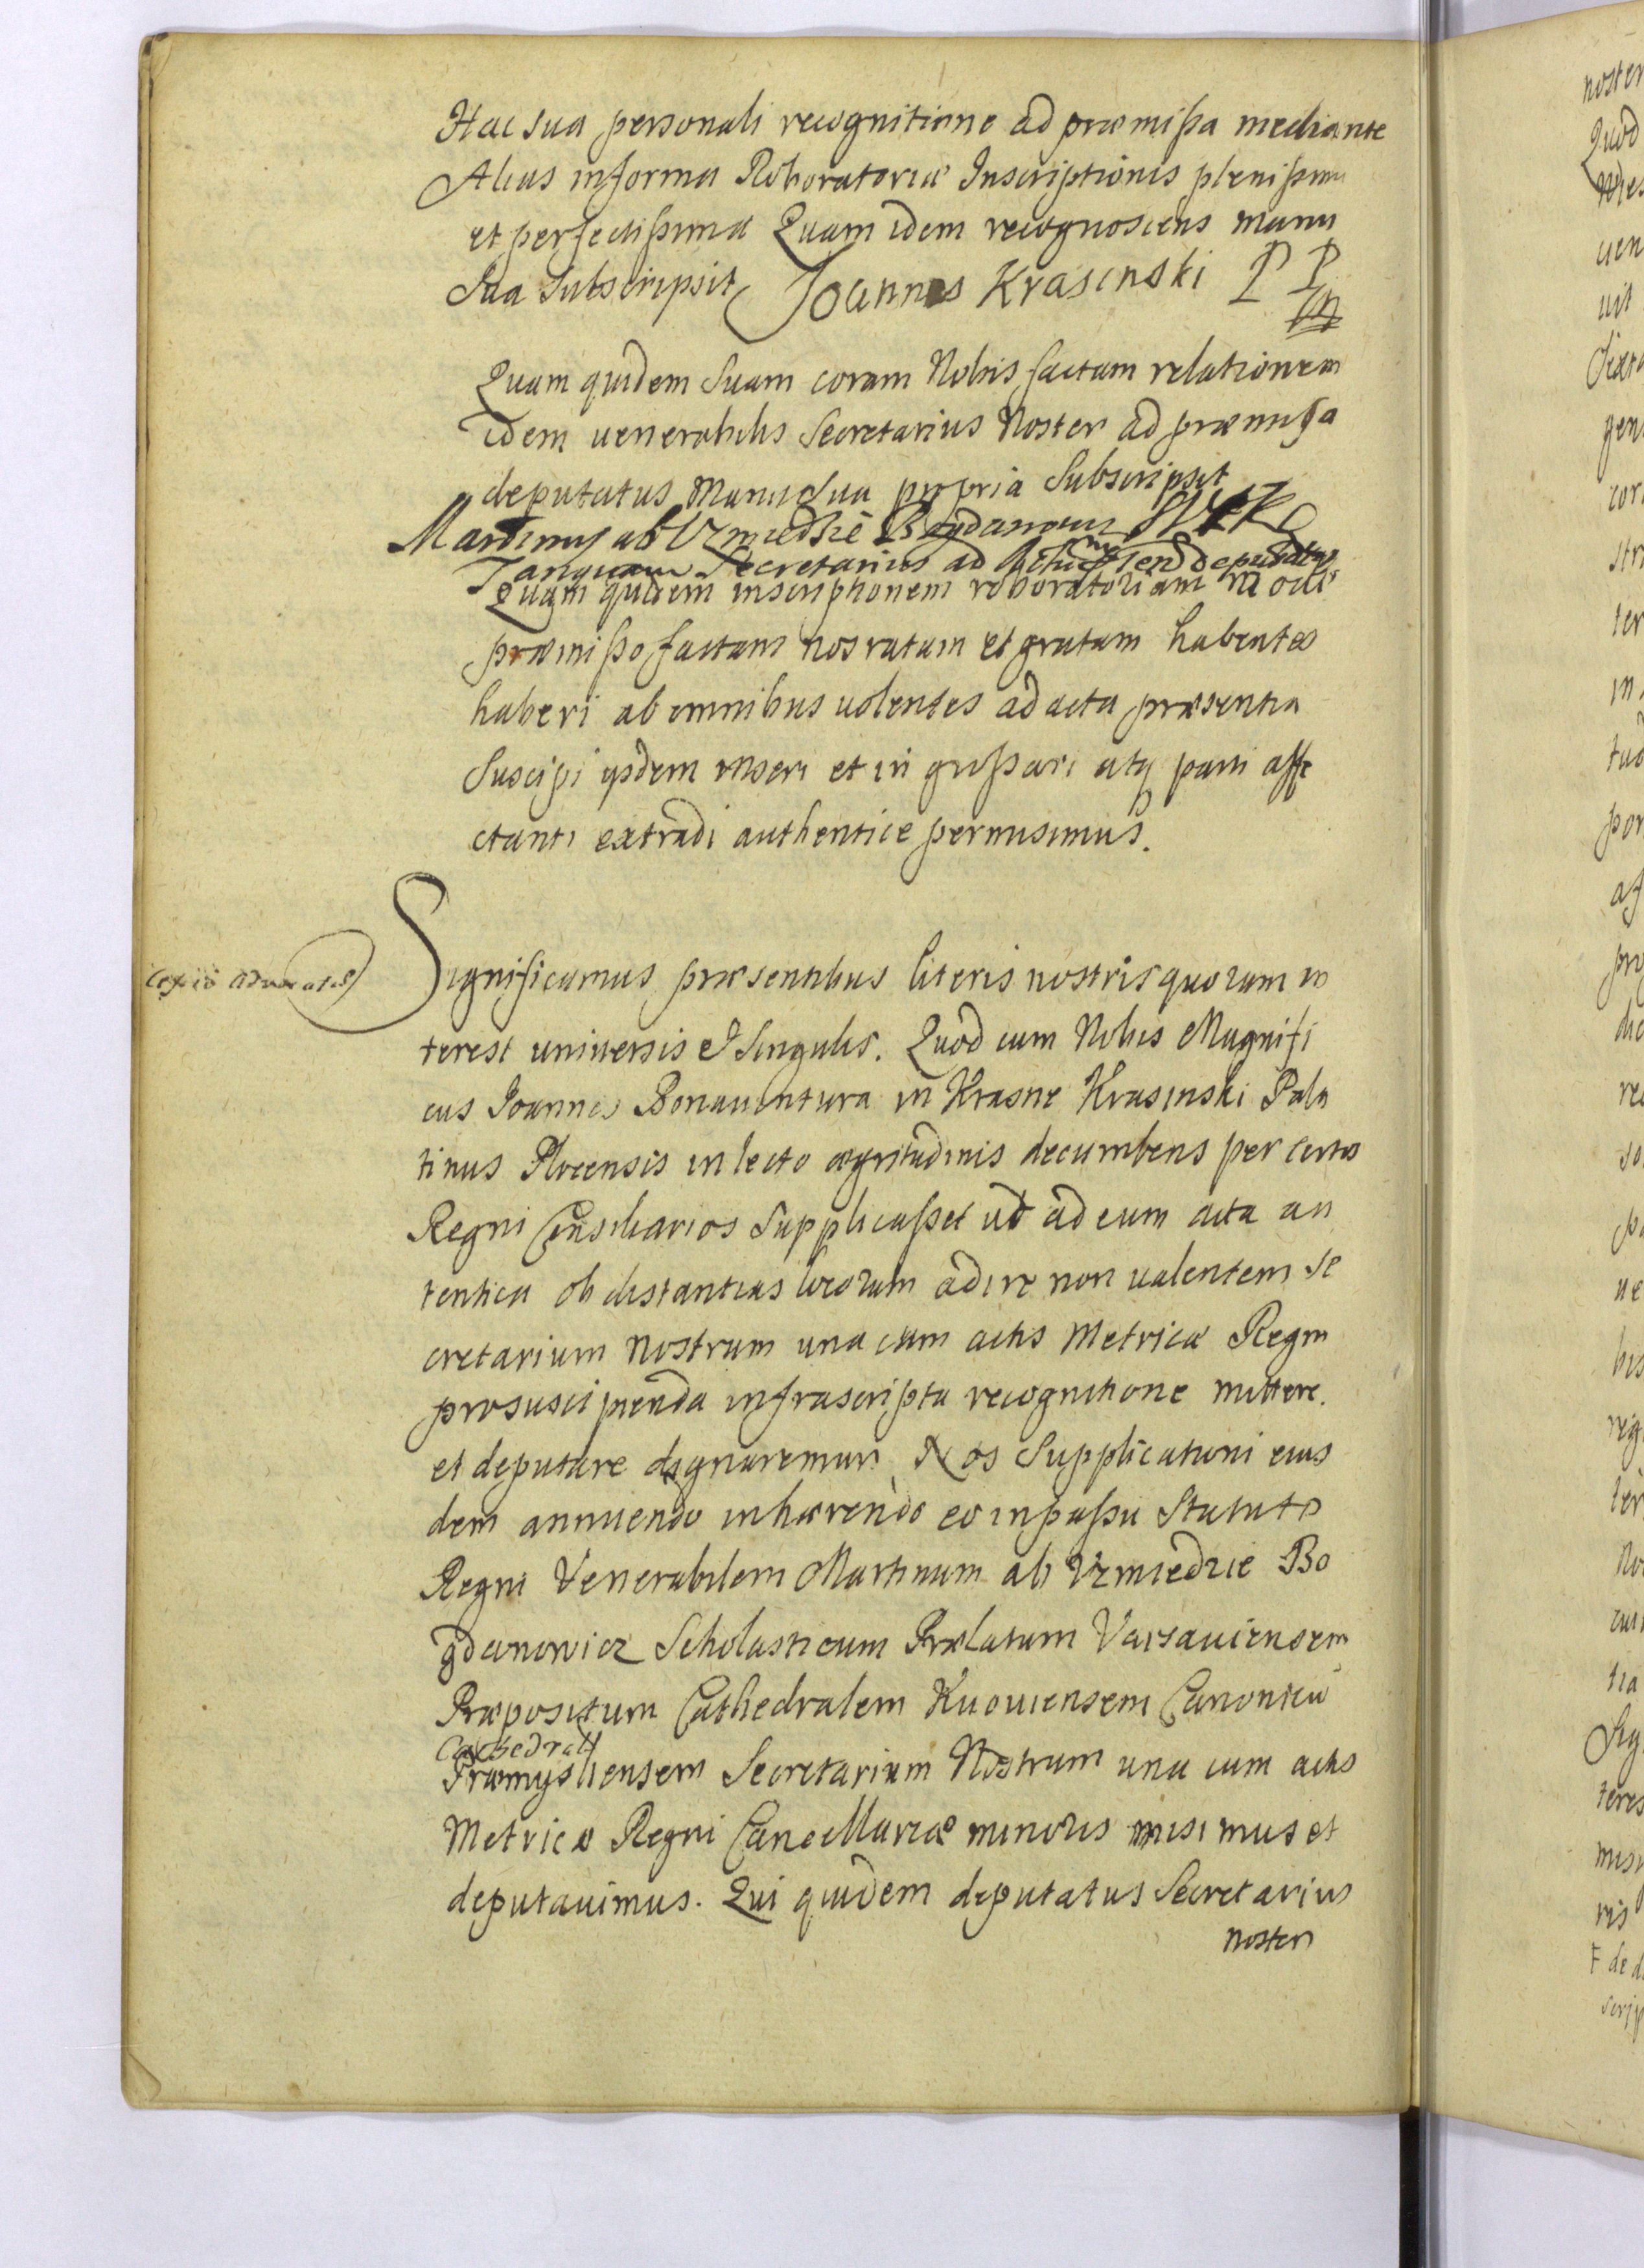 Hac sua personali recognitione ad præmissa mediante
Alias in forma Roboratoriæ Inscriptionis plenissima
et perfectissima Quam idem recognoscens manu
sua subscripsit Joannes Krasinski P P
Quam quidem suam coram Nobis factam relationem
idem uenerabilis Secretarius Noster ad præmissa
deputatus Manu sua propria subscripsit
Martinus ab Vzmiedzie Bogdanowicz
Tanquam Secretarius ad deputatus
Quam quidem inscriptionem roboratoriam modis
præmisso factam nos ratam et gratam habentes
haberi ab omnibus uolentes ad acta præsentia
suscipi ysdem inseri et in grossari atq parti affe
ctanti extradi authentice permisimus.
Significamus præsentibus literis nostris quorum in
terest uniuersis et singulis. Quod cum Nobis Magnifi
cus Joannes Bonauentura in Krasne Krasinski Pala
tinus Plocensis in lecto ægritudinis decumbens per certos
Regni Consiliarios supplicasset ut ad eum acta au
tentica ob distantias locorum adire non ualentem se
cretarium nostrum una cum actis Metricæ Regni
pro suscipienda infrascripta recognitione mittere.
et deputare dignaremur Nos supplicationi eius
dem annuendo inhærendo eo in passu statuto
Regni Venerabilem Martinum ab Vzmiedzie Bo
gdanowicz Scholasticum Prælatum Varsauiensem
Præpositum Cathedralem Kuouiensem Canonicū
Cathedralē
Præmysliensem Secretarium Nostrum una cum actis
Metricæ Regni Cancellariæ minoris misimus et
deputauimus. Qui quidem deputatus Secretarius
noster